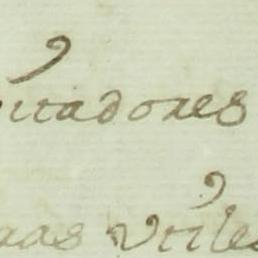 itadores
aas Vtiles